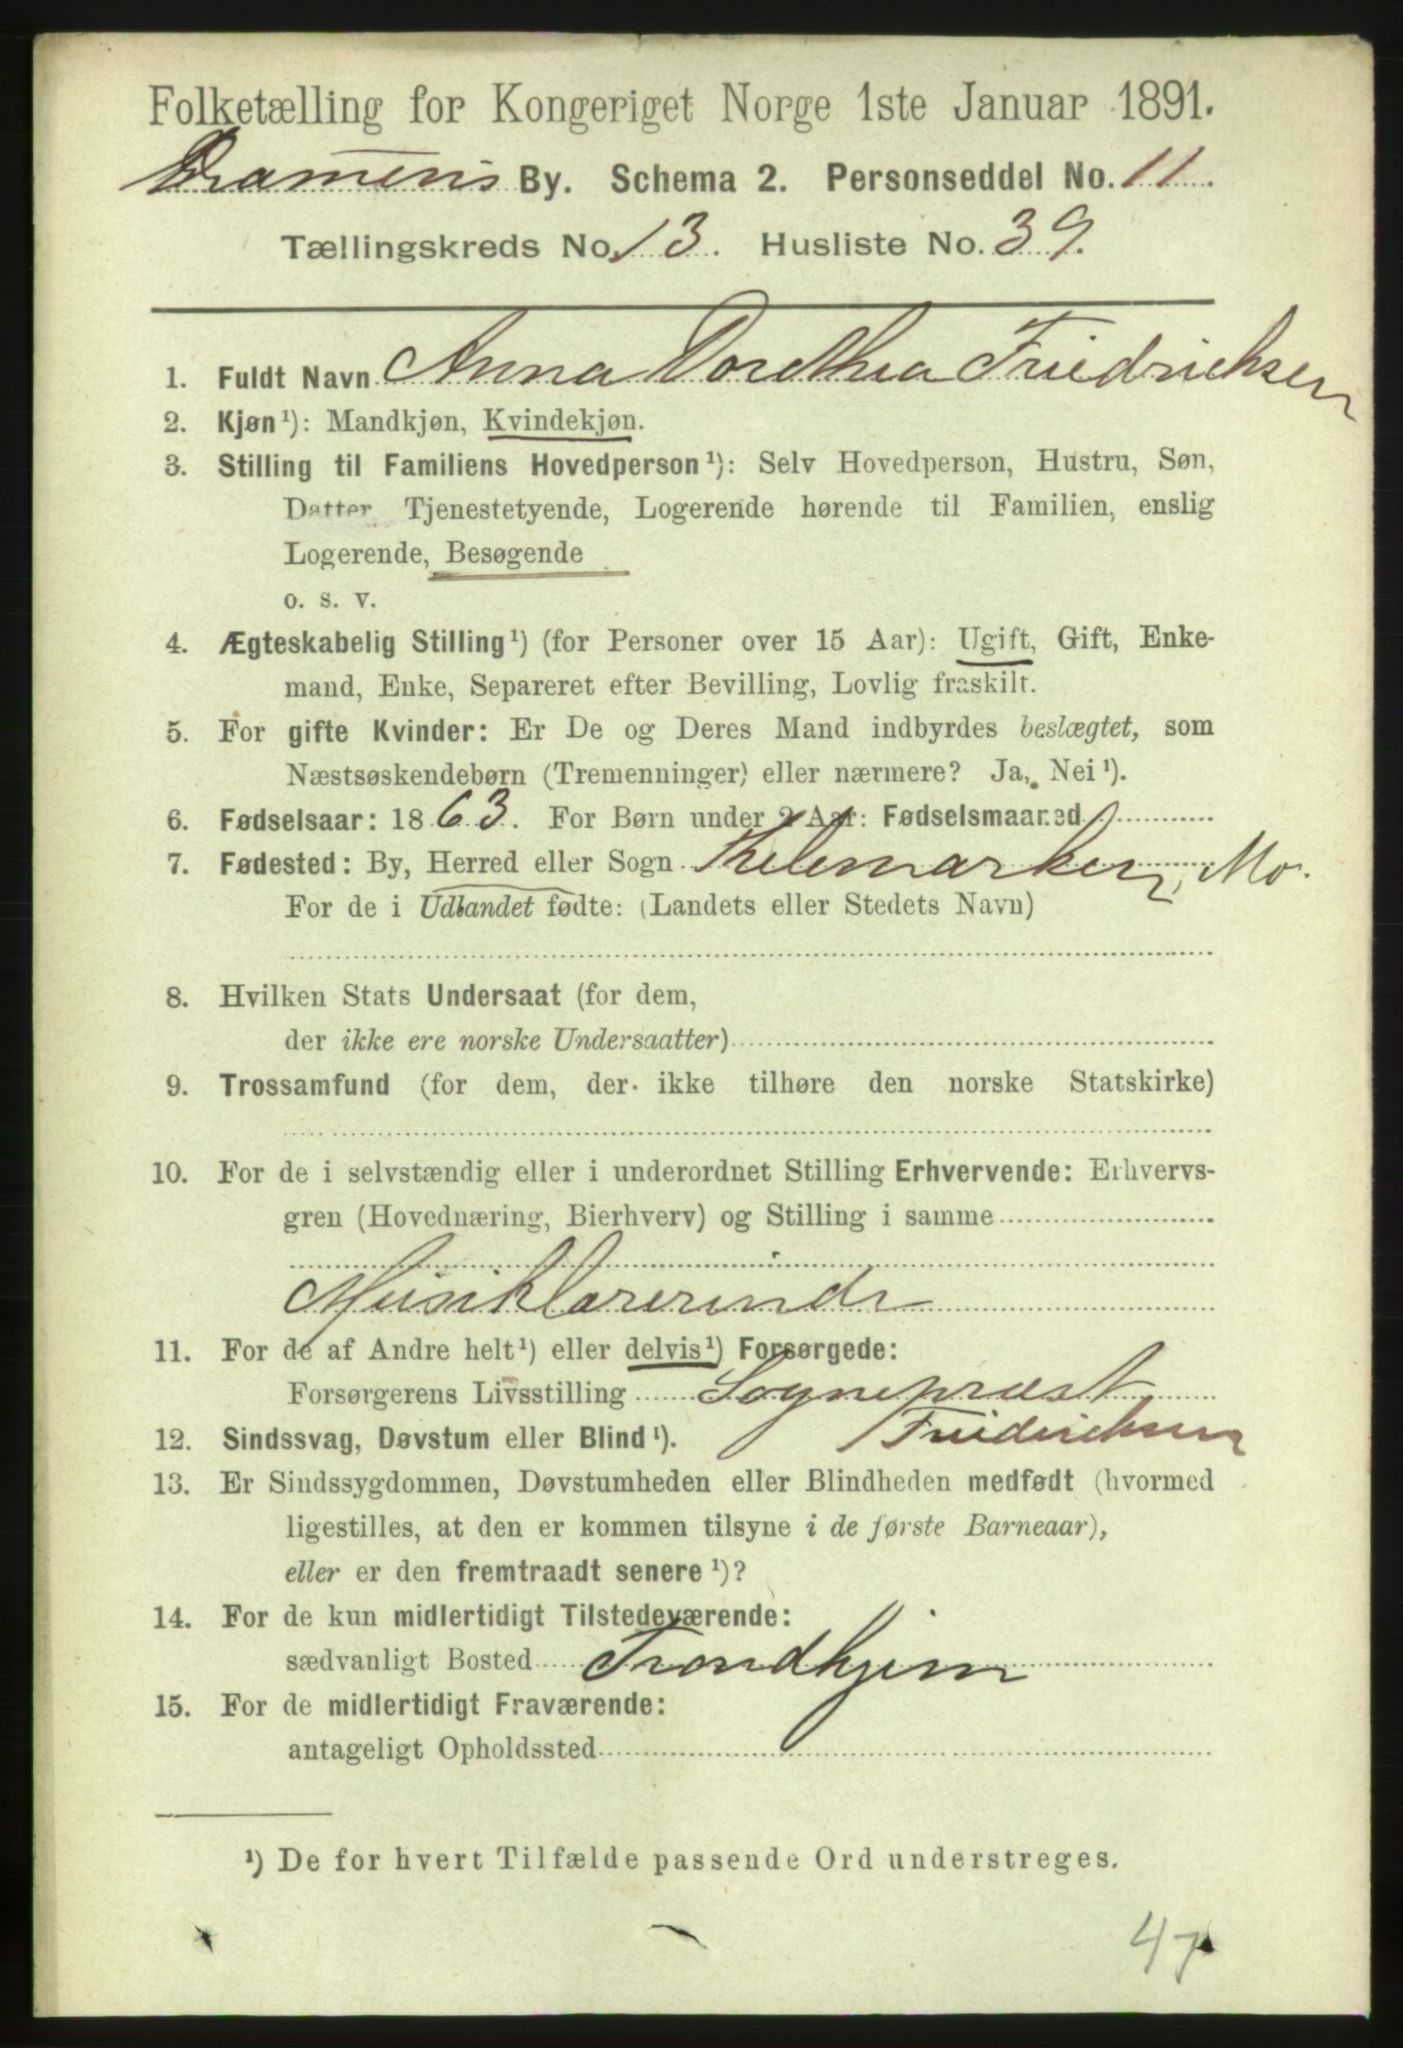 Folketælling for Kongeriget Norge 1ste Januar 1891.
Dramens By. Schema 2. Personseddel No. 11.
Tællingskreds No. 13. Husliste No. 39.
1. Fuldt Navn Anna Dorothea Friedrichsen
2. Kjøn¹): Mandkjøn, Kvindekjøn.
3. Stilling til Familiens Hovedperson¹): Selv Hovedperson, Hustru, Søn,
Datter, Tjenestetyende, Logerende hørende til Familien, enslig
Logerende, Besøgende
o. s. v.
4. Ægteskabelig Stilling¹) (for Personer over 15 Aar): Ugift, Gift, Enke-
mand, Enke, Separeret efter Bevilling, Lovlig fraskilt.
5. For gifte Kvinder: Er De og Deres Mand indbyrdes beslægtet, som
Næstsøskendebørn (Tremenninger) eller nærmere? Ja, Nei¹).
6. Fødselsaar: 1863. For Børn under 2 Aar: Fødselsmaaned
7. Fødested: By, Herred eller Sogn Thelemarken, Mo.
For de i Udlandet fødte: (Landets eller Stedets Navn)
8. Hvilken Stats Undersaat (for dem,
der ikke ere norske Undersaatter)
9. Trossamfund (for dem, der ikke tilhøre den norske Statskirke)
10. For de i selvstændig eller i underordnet Stilling Erhvervende: Erhvervs-
gren (Hovednæring, Bierhverv) og Stilling i samme
Musiklærerinde
11. For de af Andre helt¹) eller delvis¹) Forsørgede:
Forsørgerens Livsstilling Sognepræst
Friedrichsen
12. Sindssvag, Døvstum eller Blind¹).
13. Er Sindssygdommen, Døvstumheden eller Blindheden medfødt (hvormed
ligestilles, at den er kommen tilsyne i de første Barneaar),
eller er den fremtraadt senere¹)?
14. For de kun midlertidigt Tilstedeværende:
sædvanligt Bosted Trondhjem
15. For de midlertidigt Fraværende:
antageligt Opholdssted
¹) De for hvert Tilfælde passende Ord understreges.
47